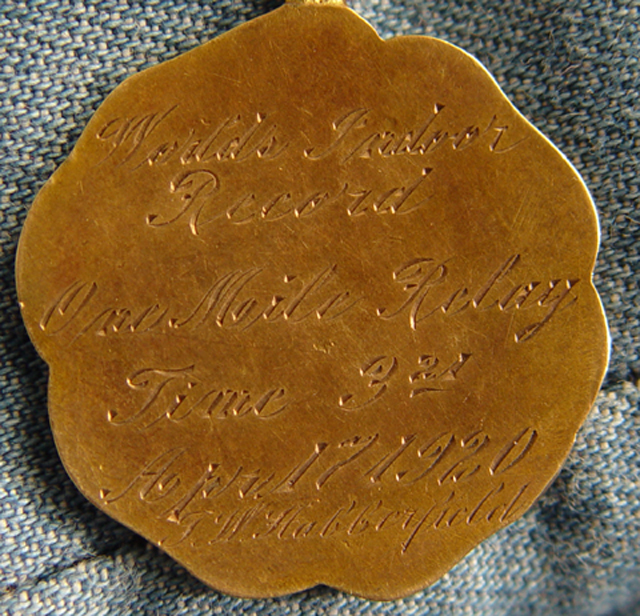 World's Indoor
Record
One Mile Relay
Time 3 21
Apr. 17 1920
G W Habberfield